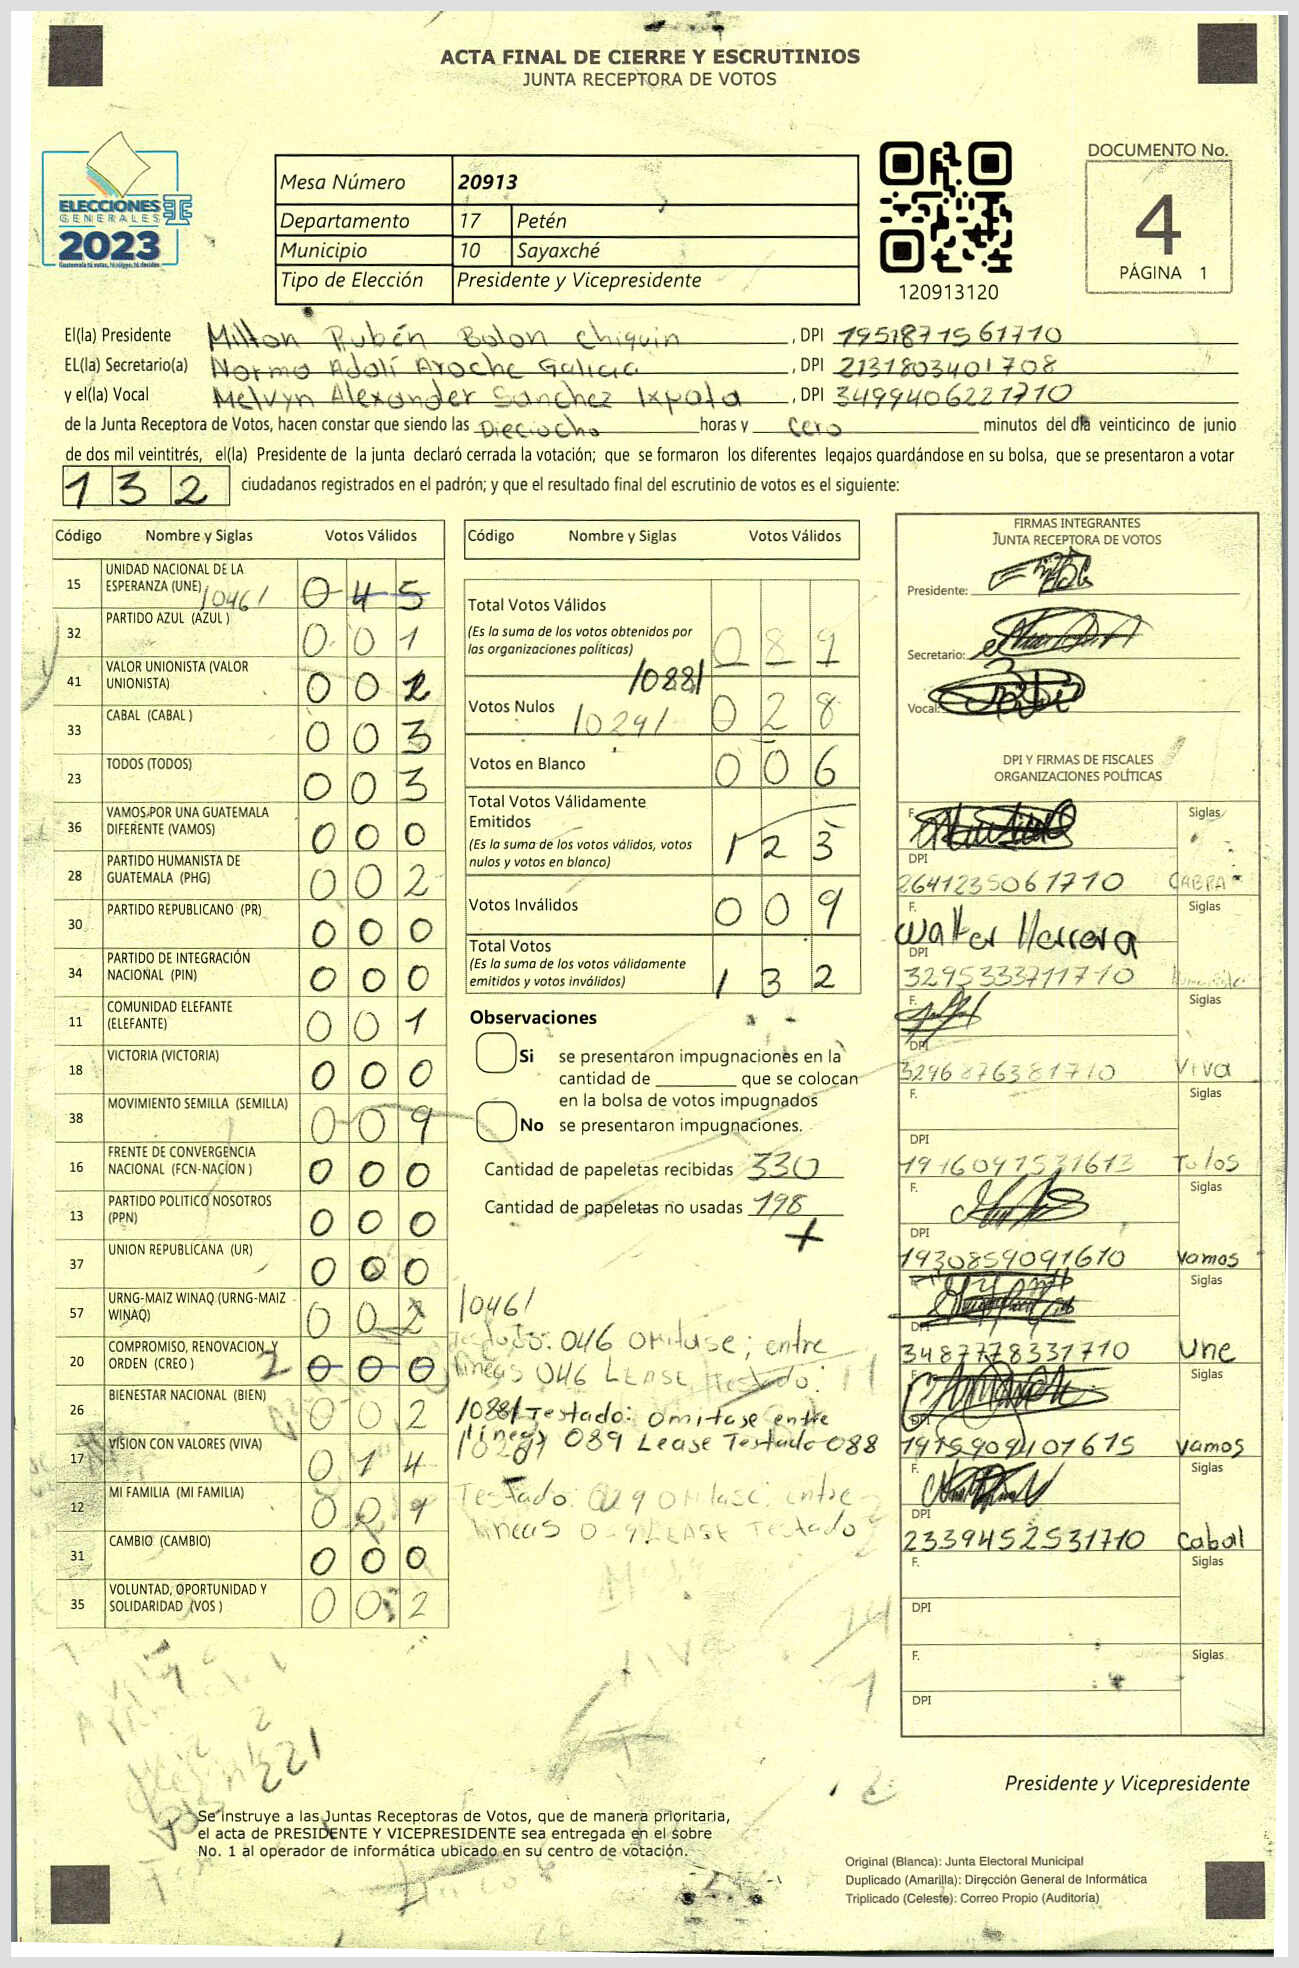 ACTA FINAL DE CIERRE Y ESCRUTINIOS
JUNTA RECEPTORA DE VOTOS
ELECCIONES
GENERALES
2023
Mesa Número 20913
Departamento 17 Petén
Municipio 10 Sayaxché
Tipo de Elección Presidente y Vicepresidente
120913120
DOCUMENTO No.
4
PÁGINA 1
El(la) Presidente Milton Rubén Bolon Chiquin, DPI 1951871561710
EL(la) Secretario(a) Norma Adolí Aroche Galicia, DPI 2131803401708
y el(la) Vocal Melvyn Alexander Sanchez Ixpata, DPI 3499406221710
de la Junta Receptora de Votos, hacen constar que siendo las Dieciocho horas y Cero minutos del día veinticinco de junio
de dos mil veintitrés, el(la) Presidente de la junta declaró cerrada la votación; que se formaron los diferentes legajos guardándose en su bolsa, que se presentaron a votar
132 ciudadanos registrados en el padrón; y que el resultado final del escrutinio de votos es el siguiente:
Código Nombre y Siglas Votos Válidos
15 UNIDAD NACIONAL DE LA ESPERANZA (UNE) /046/ 0 4 5
32 PARTIDO AZUL (AZUL ) 0 0 1
41 VALOR UNIONISTA (VALOR UNIONISTA) 0 0 2
33 CABAL (CABAL ) 0 0 3
23 TODOS (TODOS) 0 0 3
36 VAMOS POR UNA GUATEMALA DIFERENTE (VAMOS) 0 0 0
28 PARTIDO HUMANISTA DE GUATEMALA (PHG) 0 0 2
30 PARTIDO REPUBLICANO (PR) 0 0 0
34 PARTIDO DE INTEGRACIÓN NACIONAL (PIN) 0 0 0
11 COMUNIDAD ELEFANTE (ELEFANTE) 0 0 1
18 VICTORIA (VICTORIA) 0 0 0
38 MOVIMIENTO SEMILLA (SEMILLA) 0 0 9
16 FRENTE DE CONVERGENCIA NACIONAL (FCN-NACION ) 0 0 0
13 PARTIDO POLITICO NOSOTROS (PPN) 0 0 0
37 UNION REPUBLICANA (UR) 0 0 0
57 URNG-MAIZ WINAQ (URNG-MAIZ WINAQ) 0 0 2
20 COMPROMISO, RENOVACION Y ORDEN (CREO ) 2 0 0 0
26 BIENESTAR NACIONAL (BIEN) 0 0 2
17 VISION CON VALORES (VIVA) 0 1 4
12 MI FAMILIA (MI FAMILIA) 0 0 1
31 CAMBIO (CAMBIO) 0 0 0
35 VOLUNTAD, OPORTUNIDAD Y SOLIDARIDAD (VOS ) 0 0 2
Código Nombre y Siglas Votos Válidos
Total Votos Válidos 0 8 9
(Es la suma de los votos obtenidos por
las organizaciones políticas)
/088/
Votos Nulos /029/ 0 2 8
Votos en Blanco 0 0 6
Total Votos Válidamente
Emitidos 1 2 3
(Es la suma de los votos válidos, votos
nulos y votos en blanco)
Votos Inválidos 0 0 9
Total Votos
(Es la suma de los votos válidamente
emitidos y votos inválidos) 1 3 2
Observaciones
Si se presentaron impugnaciones en la
cantidad de ________ que se colocan
en la bolsa de votos impugnados
No se presentaron impugnaciones.
Cantidad de papeletas recibidas 330
Cantidad de papeletas no usadas 198
/046/
Testado: 046 Omitase; entre
lineas 046 LEASE Testado:
/088/ Testado: Omitase entre
lineas 089 Lease Testado 088
Testado: 029 Omitase: entre
lineas LEASE Testado
FIRMAS INTEGRANTES
JUNTA RECEPTORA DE VOTOS
Presidente:
Secretario:
Vocal:
DPI Y FIRMAS DE FISCALES
ORGANIZACIONES POLÍTICAS
F. Siglas
DPI
2641235061710
F. Siglas
Walter Herrera
DPI
3295333711710
F. Siglas
DPI
3296876381710 Viva
F. Siglas
DPI
1916041531613 Todos
F. Siglas
DPI
1930859091610 Vamos
F. Siglas
DPI
3487778331710 Une
F. Siglas
DPI
1915909401615 Vamos
F. Siglas
DPI
2339452531710 Cabal
F. Siglas
DPI
F. Siglas
DPI
Presidente y Vicepresidente
Se instruye a las Juntas Receptoras de Votos, que de manera prioritaria,
el acta de PRESIDENTE Y VICEPRESIDENTE sea entregada en el sobre
No. 1 al operador de informática ubicado en su centro de votación.
Original (Blanca): Junta Electoral Municipal
Duplicado (Amarilla): Dirección General de Informática
Triplicado (Celeste): Correo Propio (Auditoria)